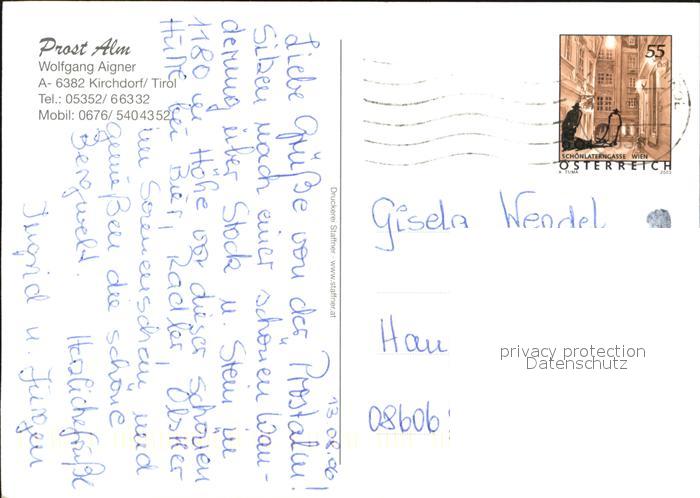 Prost Alm
Wolfgang Aigner
A- 6382 Kirchdorf/ Tirol
Tel.: 05352/ 66332
Mobil: 0676/ 5404352
13.08.06
Liebe Grüße von der Prostalm!
Sitzen nach einer schönen Wan-
derung über Stock u. Stein in
1180 m Höhe vor dieser schönen
Hütte bei Bier, Radler, Obstler
im Sonnenschein und
genießen die schöne
Bergwelt. Herzliche Grüße
Ingrid u. Jürgen
Druckerei Staffner · www.staffner.at
55
SCHÖNLATERNGASSE WIEN
ÖSTERREICH
A. TUMA 2002
Gisela Wendel
Hau
08606
privacy protection
Datenschutz